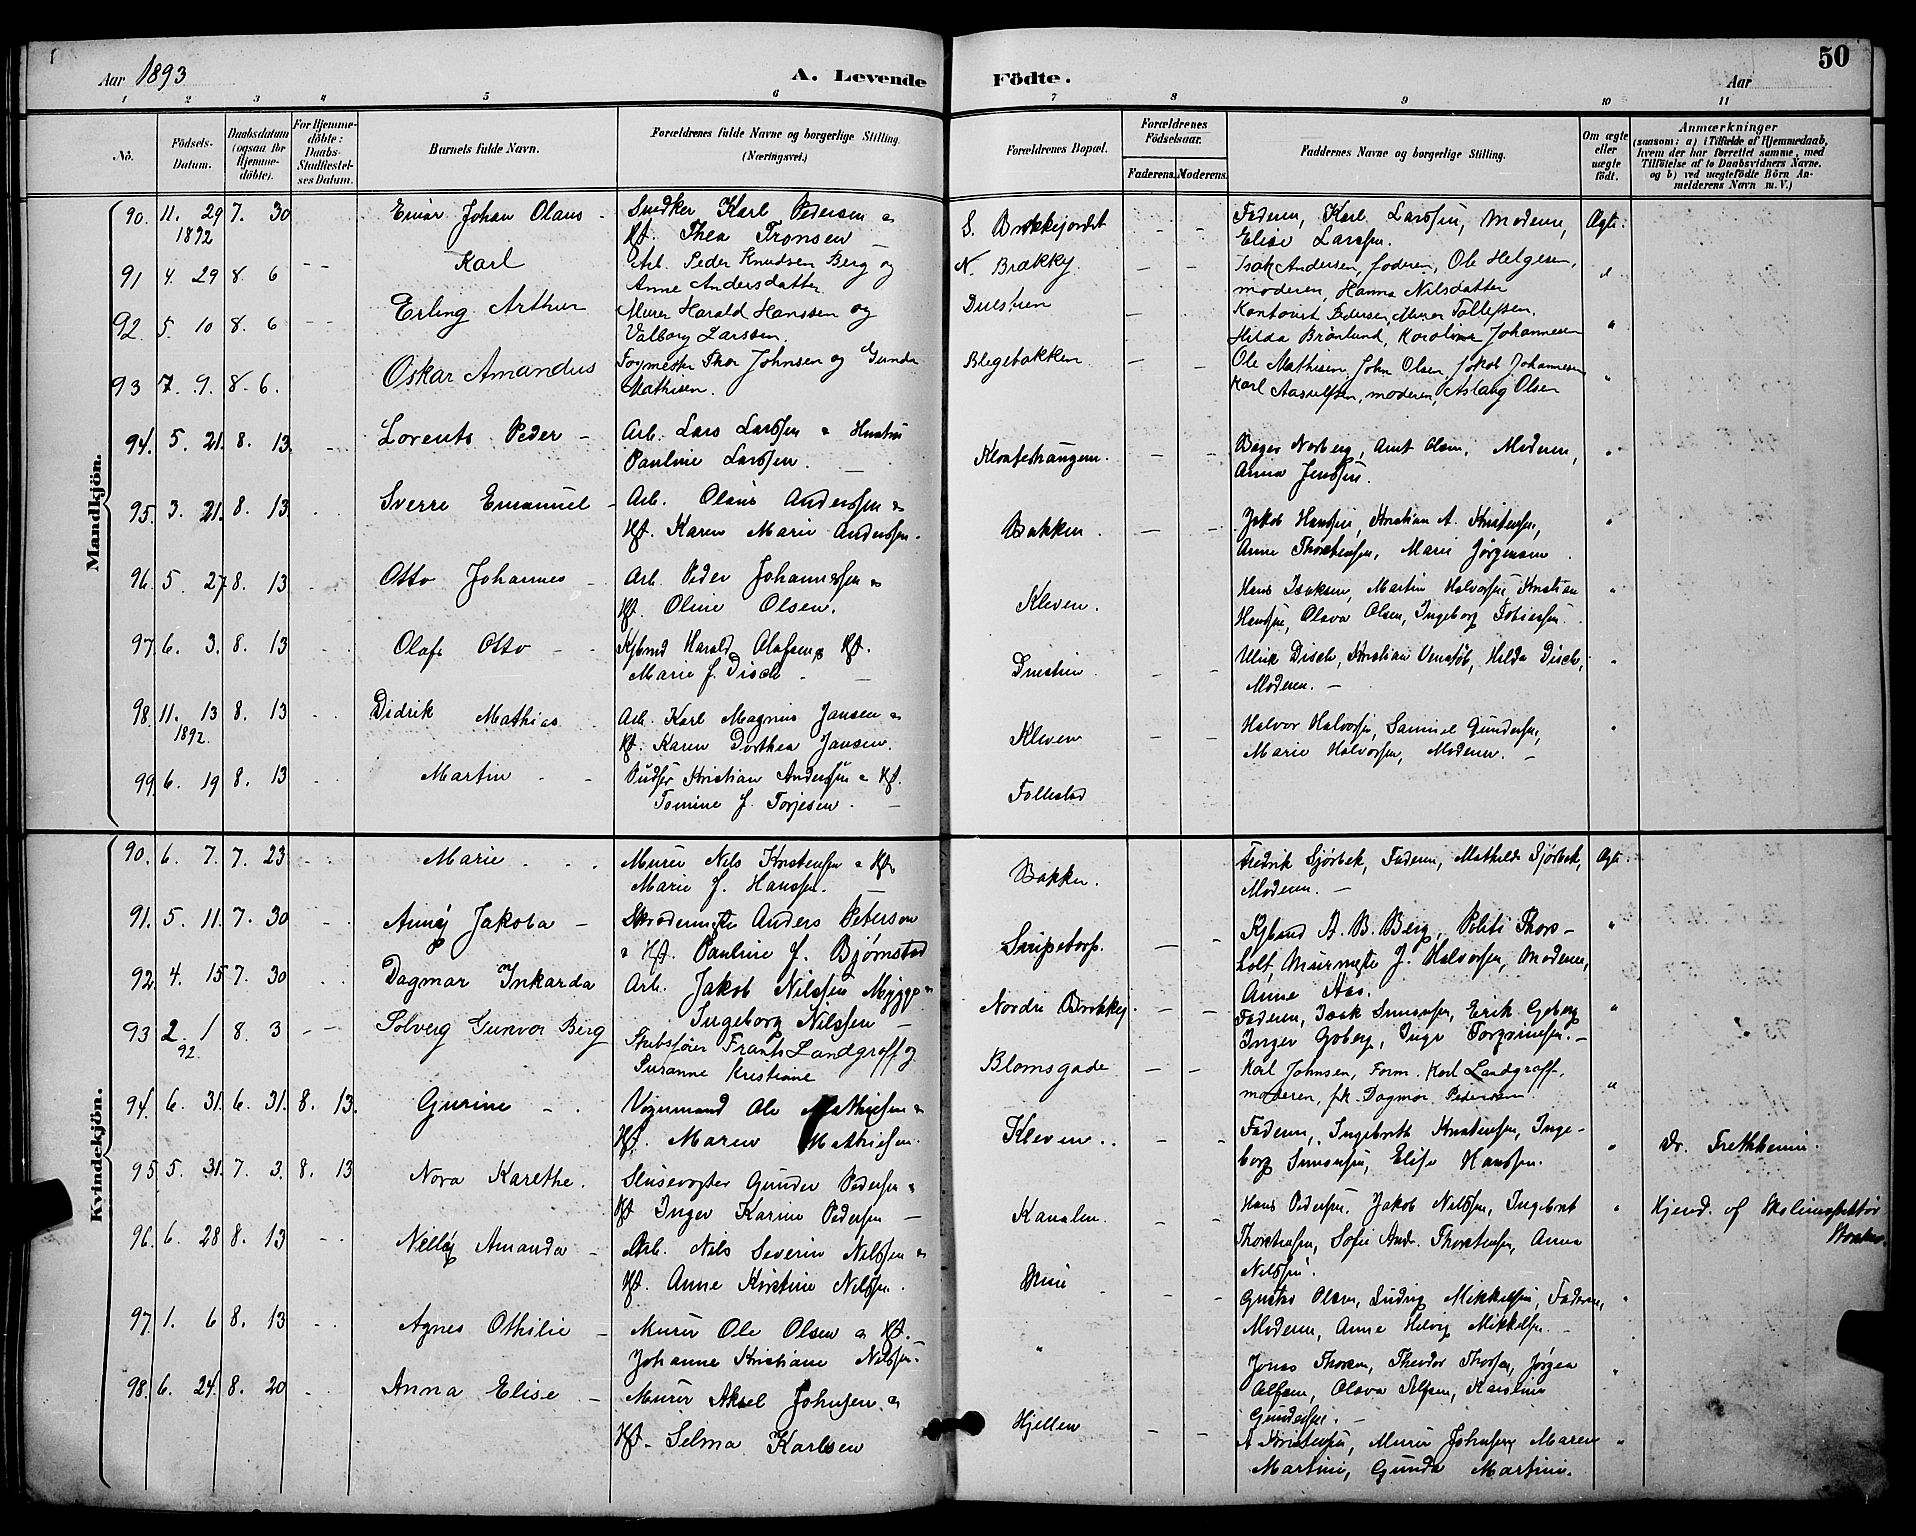 Aar 1893
A. Levende Födte.
Aar
50
1 2 3 4 5 6 7 8 9 10 11
No.
Födsels-Datum.
Daabsdatum (ogsaa for Hjemmedöbte).
For Hjemmedöbte: Daabs-Stadfæstelses Datum.
Barnets fulde Navn.
Forældrenes fulde Navne og borgerlige Stilling.
(Næringsvei.)
Forældrenes Bopæl.
Forældrenes Födselsaar.
Faderens. Moderens.
Faddernes Navne og borgerlige Stilling.
Om ægte eller uægte födt.
Anmærkninger
(saasom: a) i Tilfælde af Hjemmedaab,
hvem der har forrettet samme, med
Tilföielse af to Daabsvidners Navne,
og b) ved uægtefödte Börn An-
melderens Navn m. V.)
Mandkjön.
90. 11. 29 1892 7. 30 Einar Johan Olaus - Snedker Karl Pedersen
Hst. Thea Tronsen S. Brekkejordet Faderen, Karl Larssen, Moderen, Ægte.
Elise Larssen.
91 4. 29 8. 6 Karl Arb. Peder Knudsen Berg og
Anne Andersdatter N. Brækky Isak Andersen, faderen, Ole Helgesen,
moderen, Hanna Nilsdatter
92 5. 10 8. 6 Erling Arthur Murer Harald Hanssen og
Valborg Larssen. Duestien Kontorist Pedersen, Murer Tollefsen,
Hilda Brønlund, Karoline Johannesen
93 7. 9. 8. 6. Oskar Amandus Thor Johnsen og Gunda
Mathisen. Blegebakken Ole Mathisen, John Olsen, Jakob Johannesen
Karl Aasulfsen, moderen, Aslaug Olsen
94. 5. 21. 8. 13. Lorents Peder - Arb. Lars Larssen Hustru
Pauline Larssen. Klostestrangen. Norberg, Moderen,
Anna Jenssen.
95. 3. 21. 8. 13. Sverre Emanuel - Arb. Olaus Anderssen
Hst. Karen Marie Anderssen. Bakken. Jakob Hanssen, Kristian A. Kristensen,
Anne Thorstensen, Marie Jørgensen.
96. 5. 27 8. 13 Otto Johannes Arb. Peder Johannessen
Hst. Oline Olsen. Kleven. Hans Isaksen, Martin Halvorsen, Kristian
Hanssen, Olava Olsen, Ingeborg Tobiassen.
97. 6. 3. 8. 13 Olaf Otto Kjbmd Harald Olafsen Hst.
Marie f. Disch Duestien. Ulrik Disch, Kristian Venstøb, Hilda Disch,
Moderen. -
98. 11. 13 1892. 8. 13 Didrik Mathias Arb. Karl Magnus Jansen
Hst. Karen Dorthea Jansen. Kleven Halvor Halvorsen, Samuel Gundersen,
Marie Halvorsen, Moderen. -
99 6. 19 8. 13 Martin Pudser Kristian Andersen Hst.
Tomine f. Torjesen. Follestad
Kvindekjön.
90. 6. 7. 7. 23 Marie Murer Nils Kristensen Hst
Marie f. Hanssen. Bakken. Fredrik Sjørbek, Faderen, Mathilde Sjørbek, Ægte.
Moderen. -
91. 5. 11. 7. 30 Anny Jakoba - Skrædermester Anders Peterson
Hst. Pauline f. Bjørnstad Snipetorp. Kjbmd A. B. Berg, Politi Thors-
holt, Murmester J. Halvorsen, Moderen,
Anne Aas.
92. 4. 15 7. 30 Dagmar Inkarda Arb. Jakob Nilssen Mygge
Ingeborg Nilssen - Nordre Brekkej. Faderen, Isak Simonsen, Erik Goberg
Inger Goberg, Inge Torgrimsen. -
93 2. 1 92. 8. 3 Solveig Gunvor Berg Skibsfører Frants Landgraff og
Susanne Kristiane Blomsgade Karl Johnsen, Form. Karl Landgraff,
moderen, frk Dagmar Pedersen
94. 6. 31. 6. 31. 8. 13. Gurine Vognmand Ole Mathisen
Hst. Maren Mathisen. Kleven. Faderen, Ingebreth Kristensen, Inge-
borg Simonsen, Elise Hanssen. Dr. Fretheim.
95. 5. 31. 7. 3. 8. 13 Nora Karethe. Slusevogter Gunder Pedersen
Hst Inger Karine Pedersen - Kanalen. Hans Pedersen, Jakob Nilssen, Ingebret
Thorstensen, Sofie Andr. Thorstensen, Anna
Nilssen. Hjemd. af Skoleinspektør
96. 6. 28 8. 13 Nelly Amanda - Arb. Nils Severin Nilssen
Hst. Anne Kirstine Nilssen. Gustav Olsen, Ludvig Mikkelsen, Faderen,
Moderen, Anne Helvig Mikkelsen. -
97. 1. 6 8. 13 Agnes Othilie - Murer Ole Olsen Hst.
Johanne Kristiane Nilssen. " Jonas Thorsen, Theodor Thorsen, Jørgen
Alfsen, Olava Alfsen, Karoline
Gundersen. -
98. 6. 24. 8. 20 Anna Elise - Murer Aksel Johnsen
Hst. Selma Karlsen Hjellen A Kristensen, Murer Johnsen, Maren
Martine, Gunda Martine.